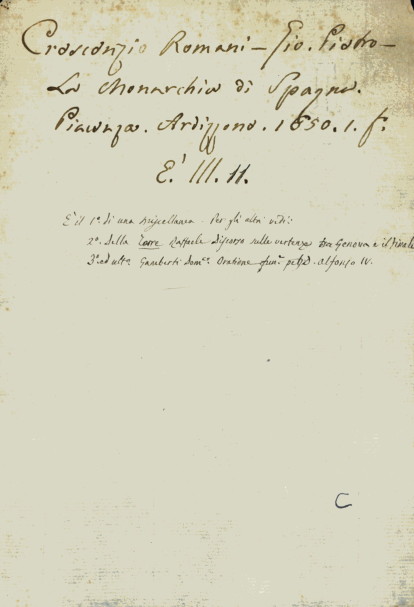 Crescenzio Romani - Gio. Pietro -
La Monarchia di Spagna.
Piacenza. Ardizzone. 1650. 1. f.
E. III. 11.
E il 1º di una miscellanea. Per gli altri vedi:
2º. Della Torre Raffaele Discorso sulle vertenze tra Genova e il
3º ed ult. Gamberti Domº. Oratione fun. Alfonso IV.
C